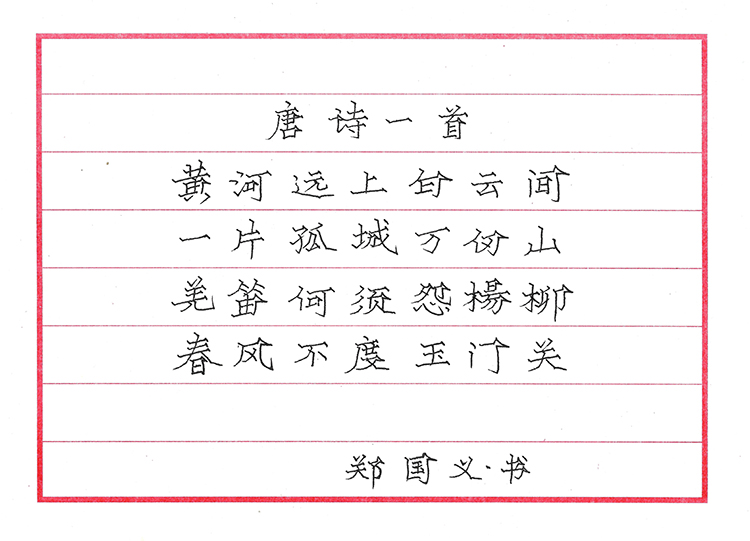 唐诗一首
黄河远上白云间
一片孤城万仞山
羌笛何须怨楊柳
春风不度玉门关
郑国义·书